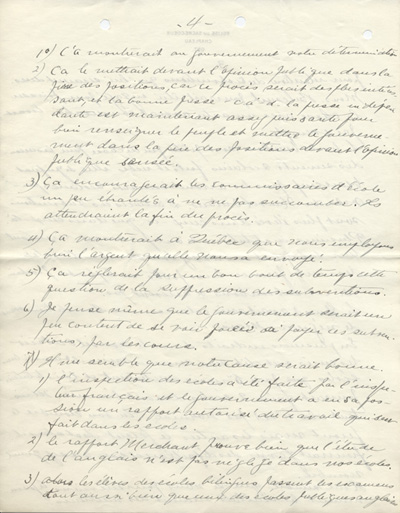 - 4 -
1º) Ça montrerait au Gouvernement notre détermination
2) Ça le mettrait devant l'opinion publique dans la
pire des positions, car ce procès serait des plus intéres-
sants et la bonne presse - ça d. la presse indépen-
dante est maintenant assez puissante pour
bien renseigner le peuple et mettre le gouverne-
ment dans la pire des positions devant l'opinion
publique sensée.
3) Ça encouragerait les commissaires d'école
un peu chancelants à ne pas succomber. Ils
attendraient la fin du procès.
4) Ça montrerait à Québec que nous employons
bien l'argent qu'elle nous a envoyé.
5) Ça règlerait pour un bon bout de temps cette
question de la suppression des subventions.
6) Je pense même que le gouvernement serait un
peu content de se voir forcé de payer ces subven-
tions, par les cours.
Il me semble que notre cause serait bonne.
1) l'inspection des écoles a été faite par l'inspec-
teur français et le gouvernement a en sa pos-
session un rapport autorisé du travail qui se
fait dans les écoles.
2) le rapport Merchant prouve bien que l'étude
de l'anglais n'est pas négligé dans nos écoles.
3) les élèves des écoles bilingues passent les examens
tout aussi bien que ceux des écoles publiques anglaises